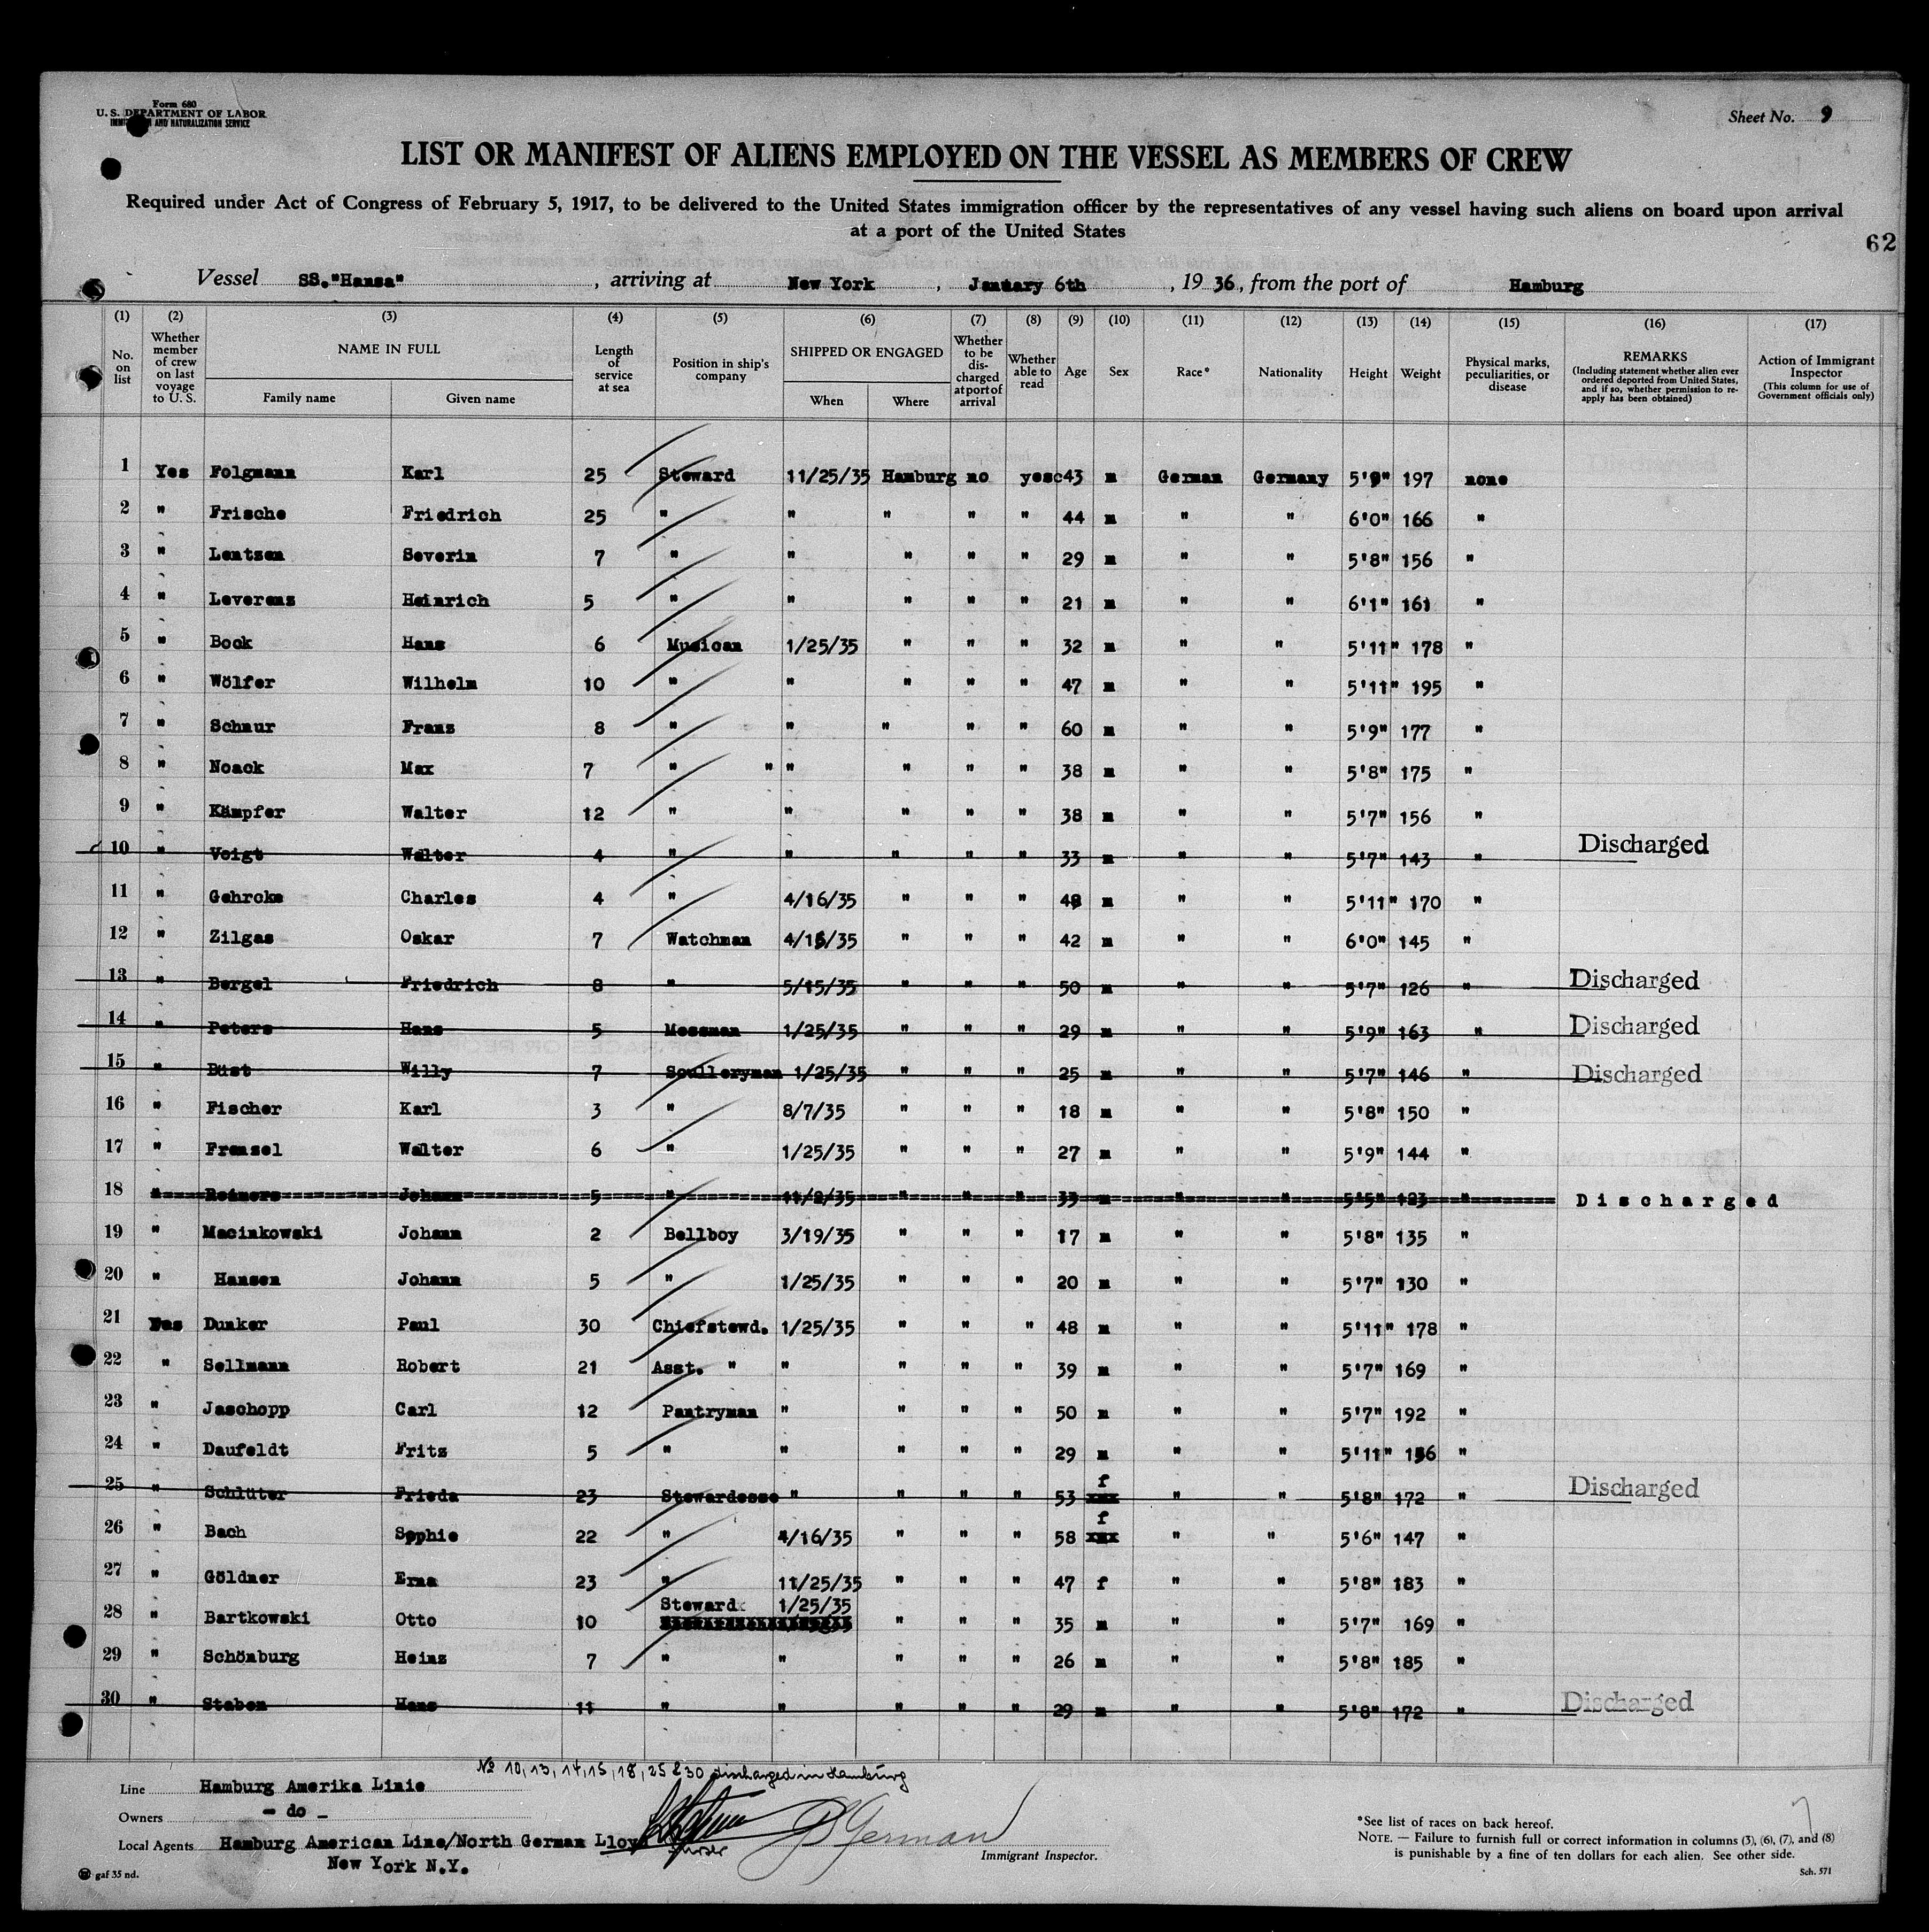 Form 680
U. S. DEPARTMENT OF LABOR
AND NATURALIZATION SERVICE
Sheet No. 9
LIST OR MANIFEST OF ALIENS EMPLOYED ON THE VESSEL AS MEMBERS OF CREW
Required under Act of Congress of February 5, 1917, to be delivered to the United States immigration officer by the representatives of any vessel having such aliens on board upon arrival
at a port of the United States
62
Vessel SS."Hansa", arriving at New York, January 6th, 19 36, from the port of Hamburg
(1) (2) (3) (4) (5) (6) (7) (8) (9) (10) (11) (12) (13) (14) (15) (16) (17)
No. on list
Whether member of crew on last voyage to U. S.
NAME IN FULL
Family name
Given name
Length of service at sea
Position in ship's company
SHIPPED OR ENGAGED
When
Where
Whether to be discharged at port of arrival
Whether able to read
Age
Sex
Race*
Nationality
Height
Weight
Physical marks, peculiarities, or disease
REMARKS
(Including statement whether alien ever ordered deported from United States, and if so, whether permission to reapply has been obtained)
Action of Immigrant Inspector
(This column for use of Government officials only)
1 Yes Folgmann Karl 25 Steward 11/25/35 Hamburg no yes 43 m German Germany 5'9" 197 none
2 " Frische Friedrich 25 " " " " " 44 m " " 6'0" 166 "
3 " Lentzen Severin 7 " " " " " 29 m " " 5'8" 156 "
4 " Leverenz Heinrich 5 " " " " " 21 m " " 6'1" 161 "
5 " Bock Hans 6 Musican 1/25/35 " " " 32 m " " 5'11" 178 "
6 " Wölfer Wilhelm 10 " " " " " 47 m " " 5'11" 195 "
7 " Schnur Franz 8 " " " " " 60 m " " 5'9" 177 "
8 " Noack Max 7 " " " " " " 38 m " " 5'8" 175 "
9 " Kämpfer Walter 12 " " " " " 38 m " " 5'7" 156 "
10 " Voigt Walter 4 " " " " " 33 m " " 5'7" 143 " Discharged
11 " Gehrcke Charles 4 " 4/16/35 " " " 48 m " " 5'11" 170 "
12 " Zilgas Oskar 7 Watchman 4/16/35 " " " 42 m " " 6'0" 145 "
13 " Bergel Friedrich 8 " 5/15/35 " " " 50 m " " 5'7" 126 " Discharged
14 " Peters Hans 5 Messman 1/25/35 " " " 29 m " " 5'9" 163 " Discharged
15 " Büst Willy 7 Sculleryman 1/25/35 " " " 25 m " " 5'7" 146 " Discharged
16 " Fischer Karl 3 " 8/7/35 " " " 18 m " " 5'8" 150 "
17 " Frensel Walter 6 " 1/25/35 " " " 27 m " " 5'9" 144 "
18 " Reimers Johann 5 " 11/2/35 " " " 33 m " " 5'5" 123 " Discharged
19 " Macinkowski Johann 2 Bellboy 3/19/35 " " " 17 m " " 5'8" 135 "
20 " Hansen Johann 5 " 1/25/35 " " " 20 m " " 5'7" 130 "
21 Yes Dunker Paul 30 Chiefstewd. 1/25/35 " " " 48 m " " 5'11" 178 "
22 " Sellmann Robert 21 Asst. " " " " " 39 m " " 5'7" 169 "
23 " Jaschopp Carl 12 Pantryman " " " " 50 m " " 5'7" 192 "
24 " Daufeldt Fritz 5 " " " " " 29 m " " 5'11" 156 "
25 " Schlüter Frieda 23 Stewardesse " " " " 53 f " " 5'8" 172 " Discharged
26 " Bach Sophie 22 " 4/16/35 " " " 58 f " " 5'6" 147 "
27 " Göldner Erna 23 " 11/25/35 " " " 47 f " " 5'8" 183 "
28 " Bartkowski Otto 10 Steward 1/25/35 " " " 35 m " " 5'7" 169 "
29 " Schönburg Heinz 7 " " " " " 26 m " " 5'8" 185 "
30 " Staben Hans 11 " " " " " 29 m " " 5'8" 172 " Discharged
No 10, 13, 14, 15, 18, 25 & 30 discharged in Hamburg
Line Hamburg Amerika Linie
Owners - do -
Local Agents Hamburg American Line/North German Lloyd
New York N.Y.
Purser
German
Immigrant Inspector.
*See list of races on back hereof.
NOTE. — Failure to furnish full or correct information in columns (3), (6), (7), and (8)
is punishable by a fine of ten dollars for each alien. See other side.
gaf 35 nd.
Sch. 571